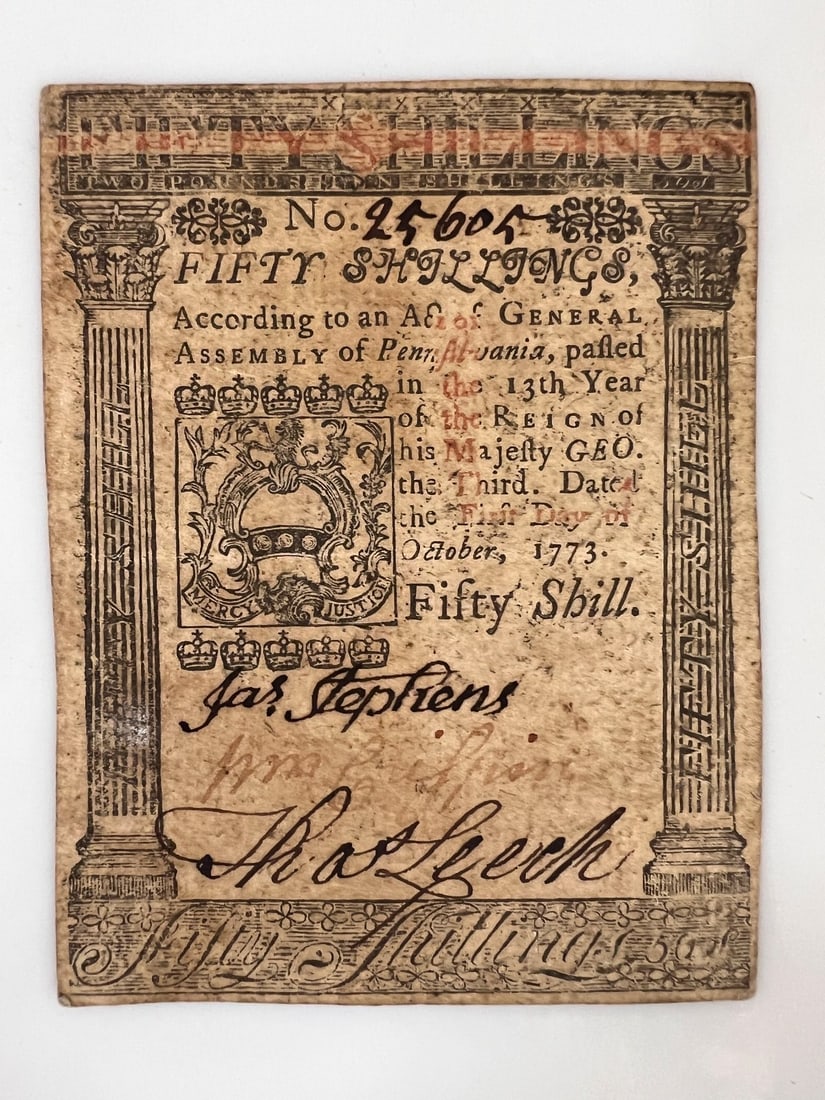 FIFTY SHILLINGS
TWO POUNDS TEN SHILLINGS 50s
No. 25605
FIFTY SHILLINGS,
According to an Act of GENERAL
ASSEMBLY of Pennſylvania, paſſed
in the 13th Year
of the REIGN of
his Majeſty GEO.
the Third. Dated
the Firſt Day of
October, 1773.
MERCY JUSTICE
Fifty Shill.
FIFTY SHILL
FIFTY SHILL
Jas. Stephens
Thos Leech
Fifty Shillings, 50s